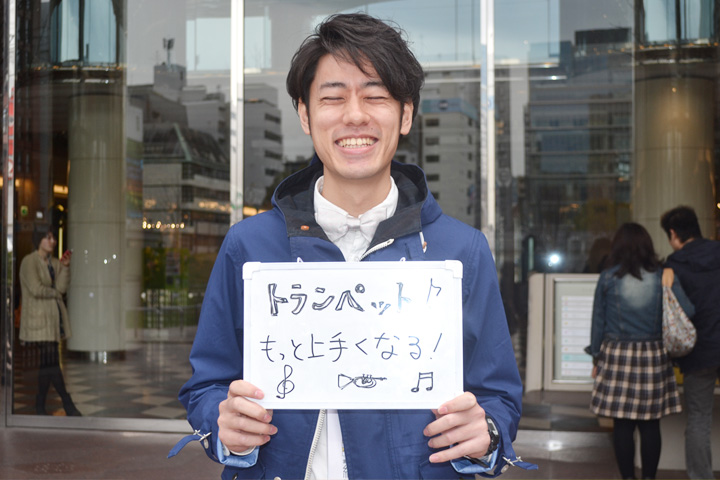 トランペット♪
もっと上手くなる!